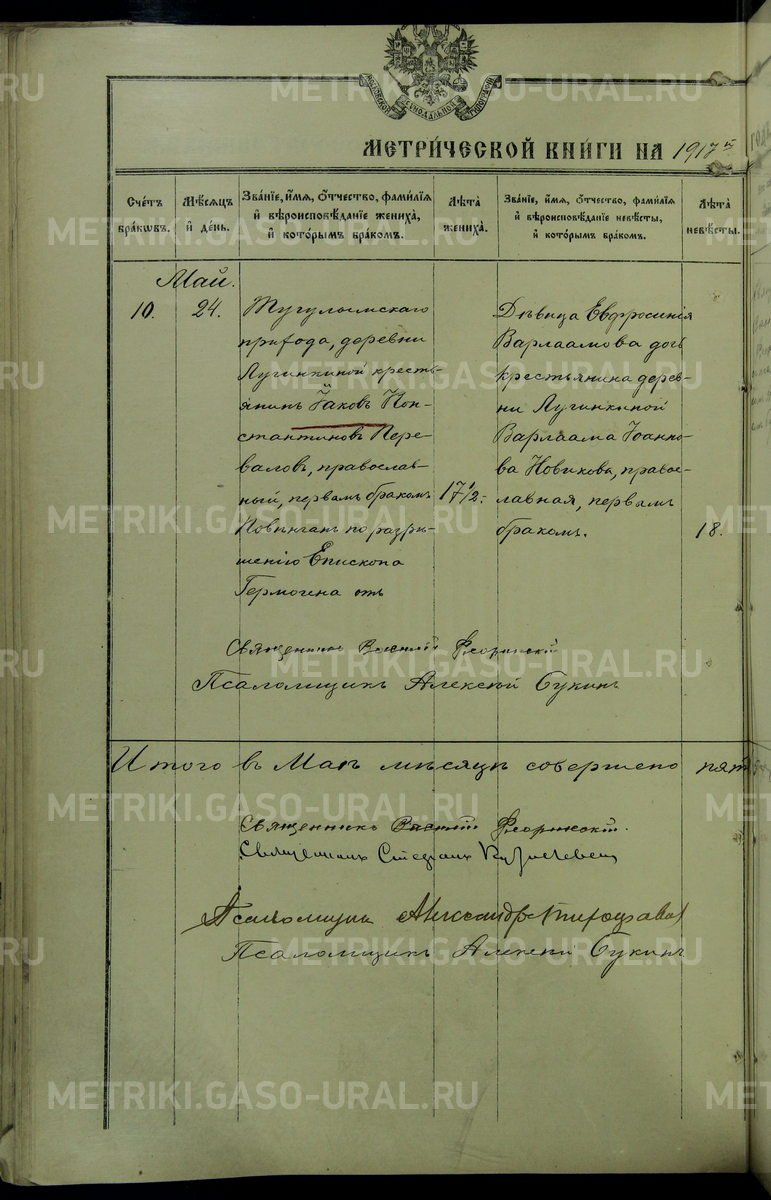 МЕТРИ́ЧЕСКОЙ КНИ́ГИ НА 1917 г.
Сче́тъ бра́кѡвъ.
Мѣ́сѧцъ и҆ де́нь.
Зва́нїе, и҆́мѧ, ѻ҆́тчество, фами́лїѧ и҆ вѣроисповѣ́данїе жениха̀, и҆ кото́рымъ бра́комъ.
Лѣ́та жениха̀.
Зва́нїе, и҆́мѧ, ѻ҆́тчество, фами́лїѧ и҆ вѣроисповѣ́данїе невѣ́сты, и҆ кото́рымъ бра́комъ.
Лѣ́та невѣ́сты.
Май.
10.
24.
Тугулымскаго
прихода, деревни
Лучинкиной кресть-
янинъ Іаковъ Кон-
стантиновъ Пере-
валовъ, православ-
ный, первымъ бракомъ
Повѣнчанъ по разрѣ-
шенію Епископа
Гермогена отъ
17 1/2.
Дѣвица Евфросинія
Варлаамова дочь
крестьянина дерев-
ни Лучинкиной
Варлаама Іоанно-
ва Новикова, право-
славная, первымъ
бракомъ.
18.
Священникъ Василій Флоринскій
Псаломщикъ Алексѣй Сукинъ
Итого въ Маѣ мѣсяцѣ совершено пять
Священникъ Василій Флоринскій.
Священникъ Стефанъ
Псаломщикъ Александръ
Псаломщикъ Алексѣй Сукинъ
METRIKI.GASO-URAL.RU